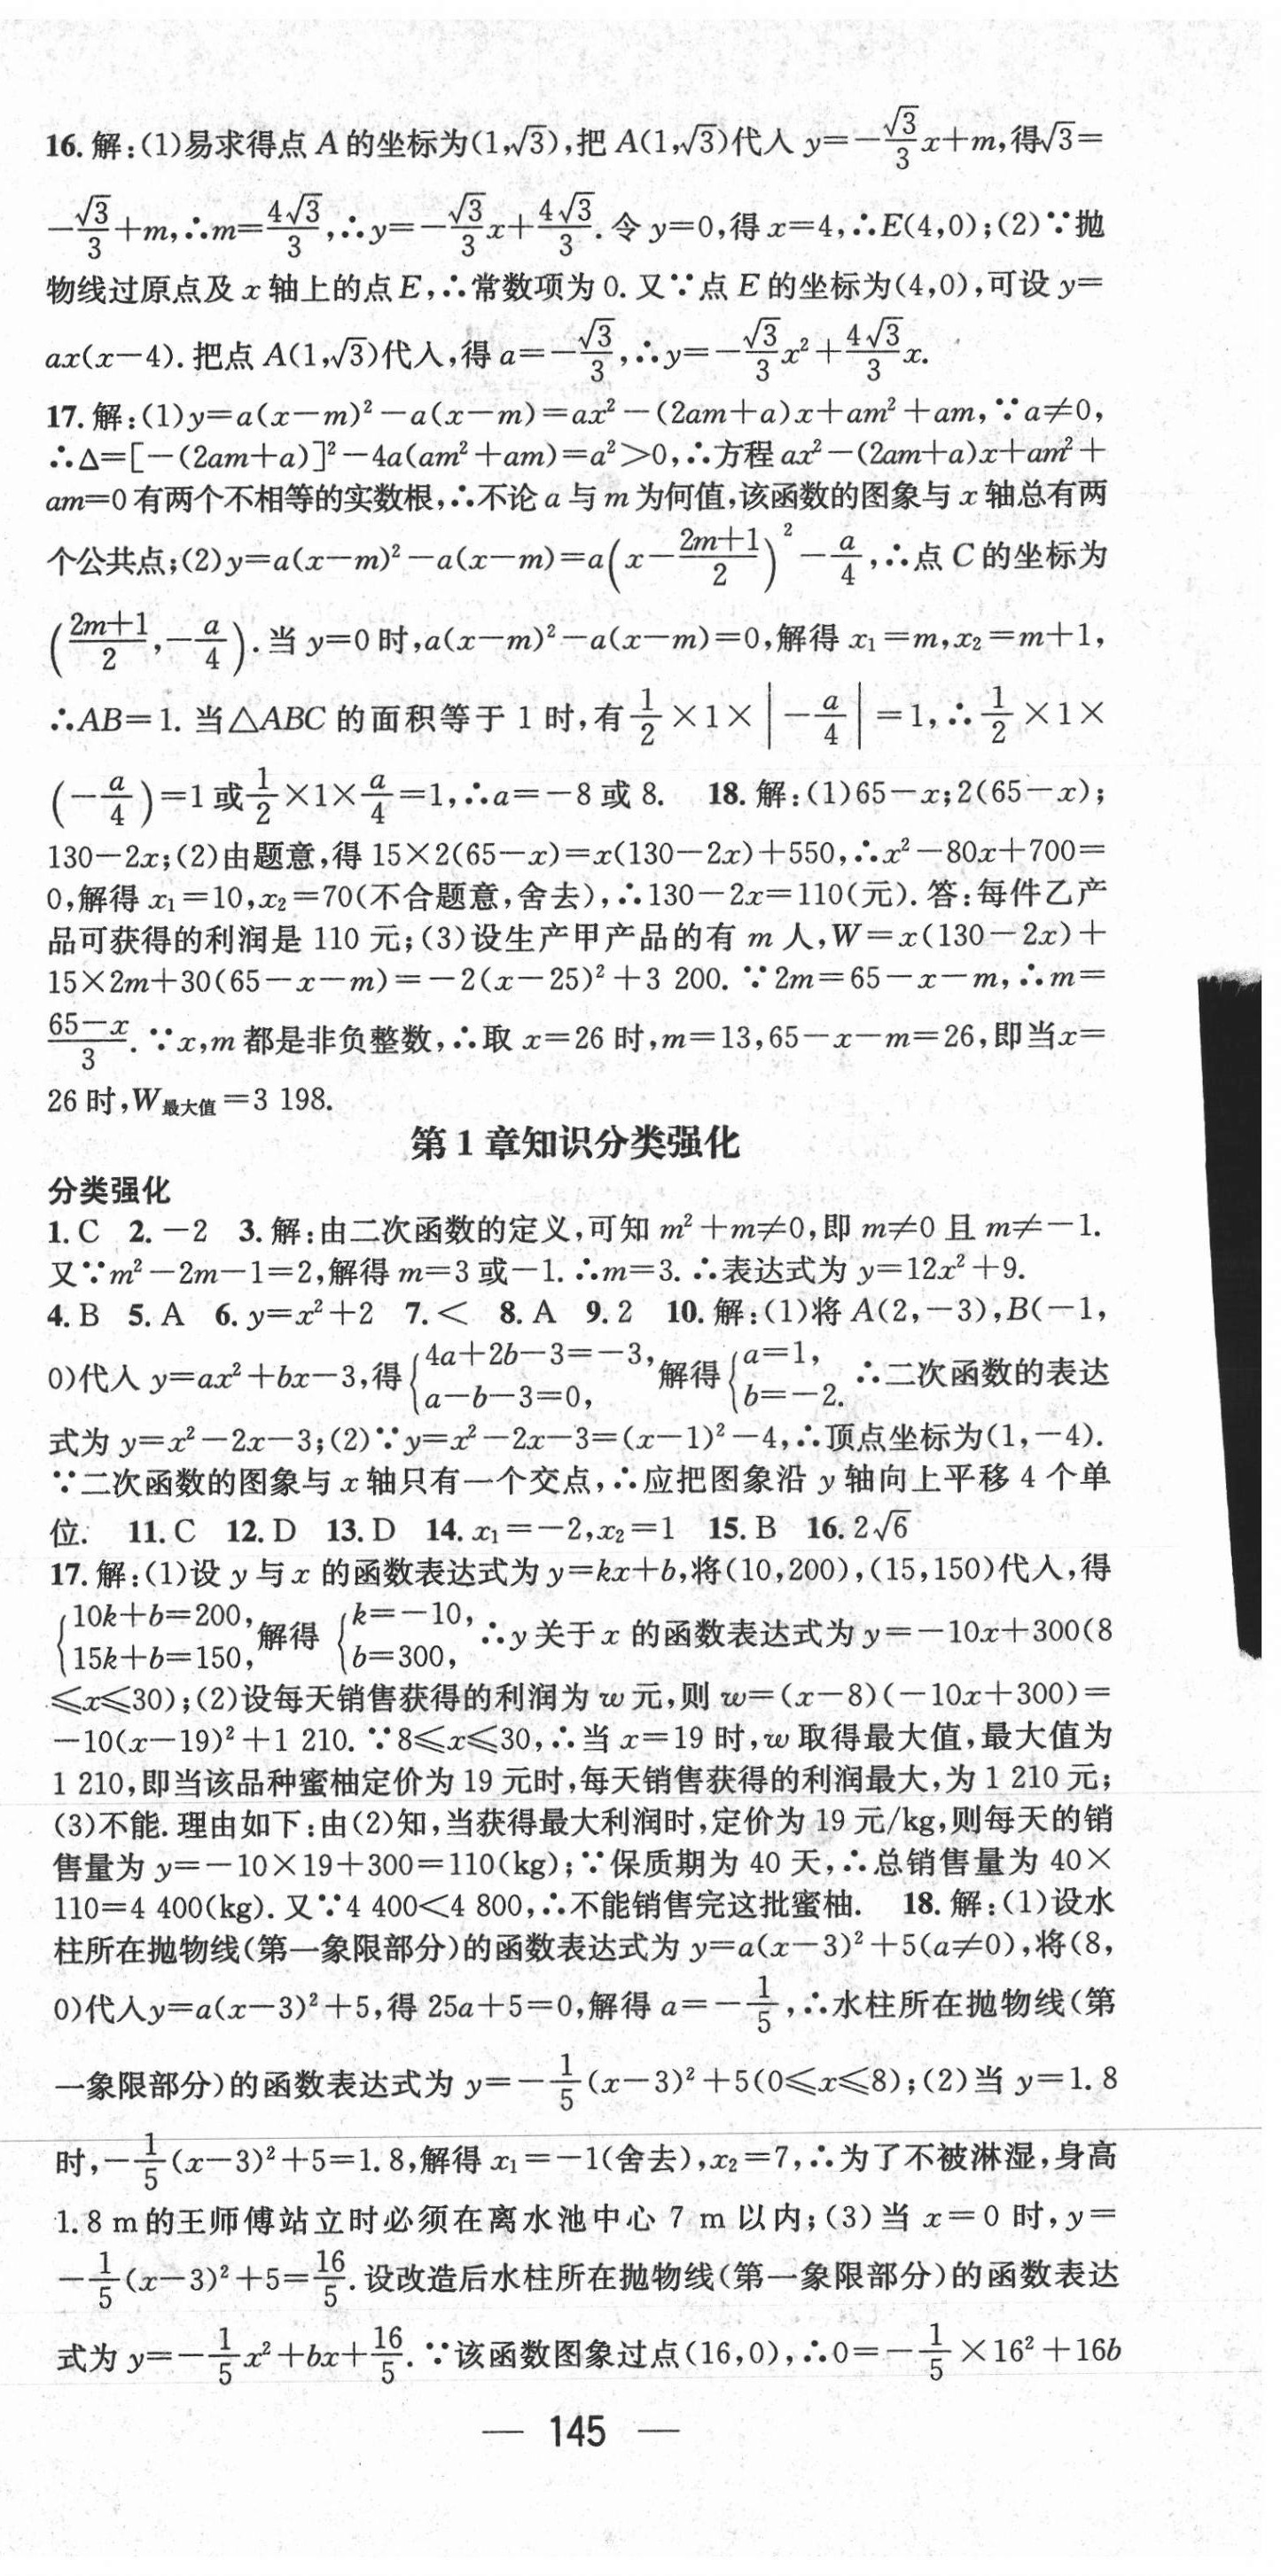 16. 解:(1)易求得点 A 的坐标为(1,√3),把 A(1,√3)代入 y=-√3/3x+m,得√3=
-√3/3+m,∴m=4√3/3,∴y=-√3/3x+4√3/3. 令 y=0,得 x=4,∴E(4,0);(2)∵抛
物线过原点及 x 轴上的点 E,∴常数项为 0. 又∵点 E 的坐标为(4,0),可设 y=
ax(x-4). 把点 A(1,√3)代入,得 a=-√3/3,∴y=-√3/3x²+4√3/3x.
17. 解:(1)y=a(x-m)²-a(x-m)=ax²-(2am+a)x+am²+am,∵a≠0,
∴Δ=[-(2am+a)]²-4a(am²+am)=a²>0,∴方程 ax²-(2am+a)x+am²+
am=0 有两个不相等的实数根,∴不论 a 与 m 为何值,该函数的图象与 x 轴总有两
个公共点;(2)y=a(x-m)²-a(x-m)=a(x-(2m+1)/2)²-a/4,∴点 C 的坐标为
((2m+1)/2,-a/4). 当 y=0 时,a(x-m)²-a(x-m)=0,解得 x₁=m,x₂=m+1,
∴AB=1. 当△ABC 的面积等于 1 时,有1/2×1×|-a/4|=1,∴1/2×1×
(-a/4)=1 或1/2×1×a/4=1,∴a=-8 或 8. 18. 解:(1)65-x;2(65-x);
130-2x;(2)由题意,得 15×2(65-x)=x(130-2x)+550,∴x²-80x+700=
0,解得 x₁=10,x₂=70(不合题意,舍去),∴130-2x=110(元). 答:每件乙产
品可获得的利润是 110 元;(3)设生产甲产品的有 m 人,W=x(130-2x)+
15×2m+30(65-x-m)=-2(x-25)²+3 200. ∵2m=65-x-m,∴m=
(65-x)/3. ∵x,m 都是非负整数,∴取 x=26 时,m=13,65-x-m=26,即当x=
26 时,W最大值=3 198.
第 1 章知识分类强化
分类强化
1. C 2. -2 3. 解:由二次函数的定义,可知 m²+m≠0,即 m≠0 且 m≠-1.
又∵m²-2m-1=2,解得 m=3 或-1. ∴m=3. ∴表达式为 y=12x²+9.
4. B 5. A 6. y=x²+2 7. < 8. A 9. 2 10. 解:(1)将 A(2,-3),B(-1,
0)代入 y=ax²+bx-3,得{4a+2b-3=-3, a-b-3=0, 解得{a=1, b=-2. ∴二次函数的表达
式为 y=x²-2x-3;(2)∵y=x²-2x-3=(x-1)²-4,∴顶点坐标为(1,-4).
∵二次函数的图象与 x 轴只有一个交点,∴应把图象沿 y 轴向上平移 4 个单
位. 11. C 12. D 13. D 14. x₁=-2,x₂=1 15. B 16. 2√6
17. 解:(1)设 y 与 x 的函数表达式为 y=kx+b,将(10,200),(15,150)代入,得
{10k+b=200, 15k+b=150, 解得 {k=-10, b=300, ∴y 关于 x 的函数表达式为 y=-10x+300(8
≤x≤30);(2)设每天销售获得的利润为 w 元,则 w=(x-8)(-10x+300)=
-10(x-19)²+1 210. ∵8≤x≤30,∴当 x=19 时,w 取得最大值,最大值为
1 210,即当该品种蜜柚定价为 19 元时,每天销售获得的利润最大,为 1 210 元;
(3)不能. 理由如下:由(2)知,当获得最大利润时,定价为 19 元/kg,则每天的销
售量为 y=-10×19+300=110(kg);∵保质期为 40 天,∴总销售量为 40×
110=4 400(kg). 又∵4 400<4 800,∴不能销售完这批蜜柚. 18. 解:(1)设水
柱所在抛物线(第一象限部分)的函数表达式为 y=a(x-3)²+5(a≠0),将(8,
0)代入y=a(x-3)²+5,得 25a+5=0,解得 a=-1/5,∴水柱所在抛物线(第
一象限部分)的函数表达式为 y=-1/5(x-3)²+5(0≤x≤8);(2)当 y=1.8
时,-1/5(x-3)²+5=1.8,解得 x₁=-1(舍去),x₂=7,∴为了不被淋湿,身高
1.8 m的王师傅站立时必须在离水池中心 7 m 以内;(3)当 x=0 时,y=
-1/5(x-3)²+5=16/5. 设改造后水柱所在抛物线(第一象限部分)的函数表达
式为 y=-1/5x²+bx+16/5. ∵该函数图象过点(16,0),∴0=-1/5×16²+16b
— 145 —